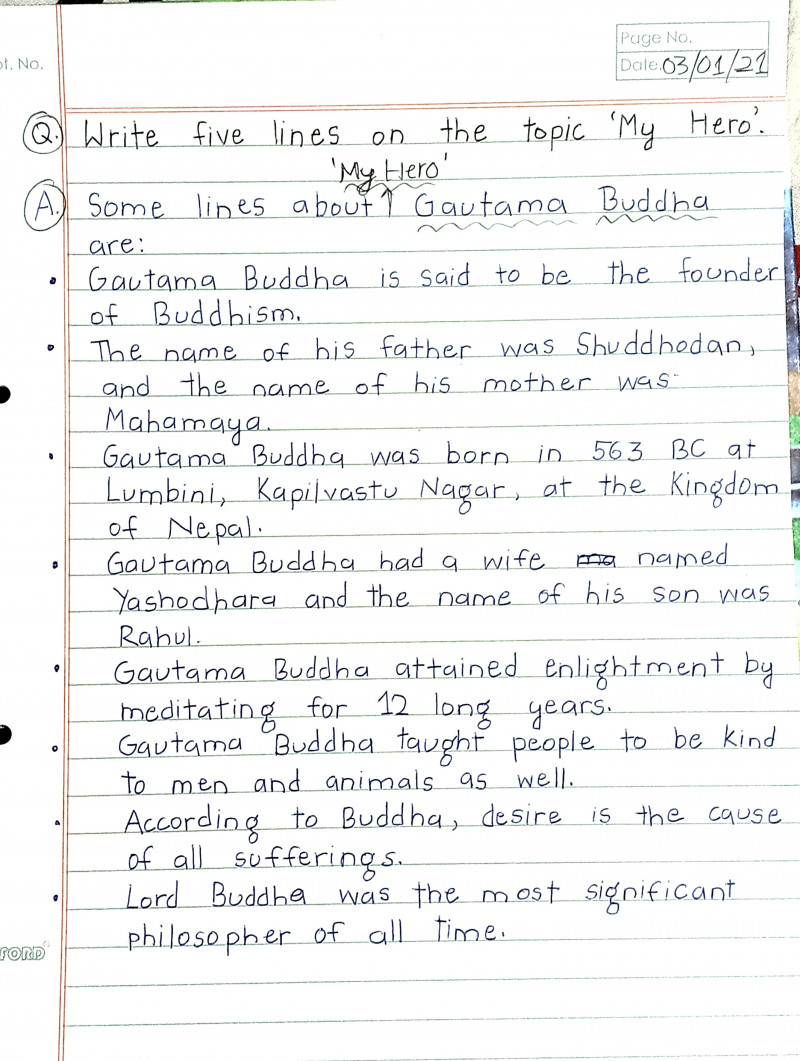 Page No.
pt. No.
Date. 03/01/21
Q. Write five lines on the topic 'My Hero'.
'My Hero'
A. Some lines about ↑ Gautama Buddha
are:
• Gautama Buddha is said to be the founder
of Buddhism.
• The name of his father was Shuddhodan,
and the name of his mother was
Mahamaya.
• Gautama Buddha was born in 563 BC at
Lumbini, Kapilvastu Nagar, at the Kingdom
of Nepal.
• Gautama Buddha had a wife named
Yashodhara and the name of his son was
Rahul.
• Gautama Buddha attained enlightment by
meditating for 12 long years.
• Gautama Buddha taught people to be kind
to men and animals as well.
• According to Buddha, desire is the cause
of all sufferings.
• Lord Buddha was the most significant
philosopher of all time.
FORD